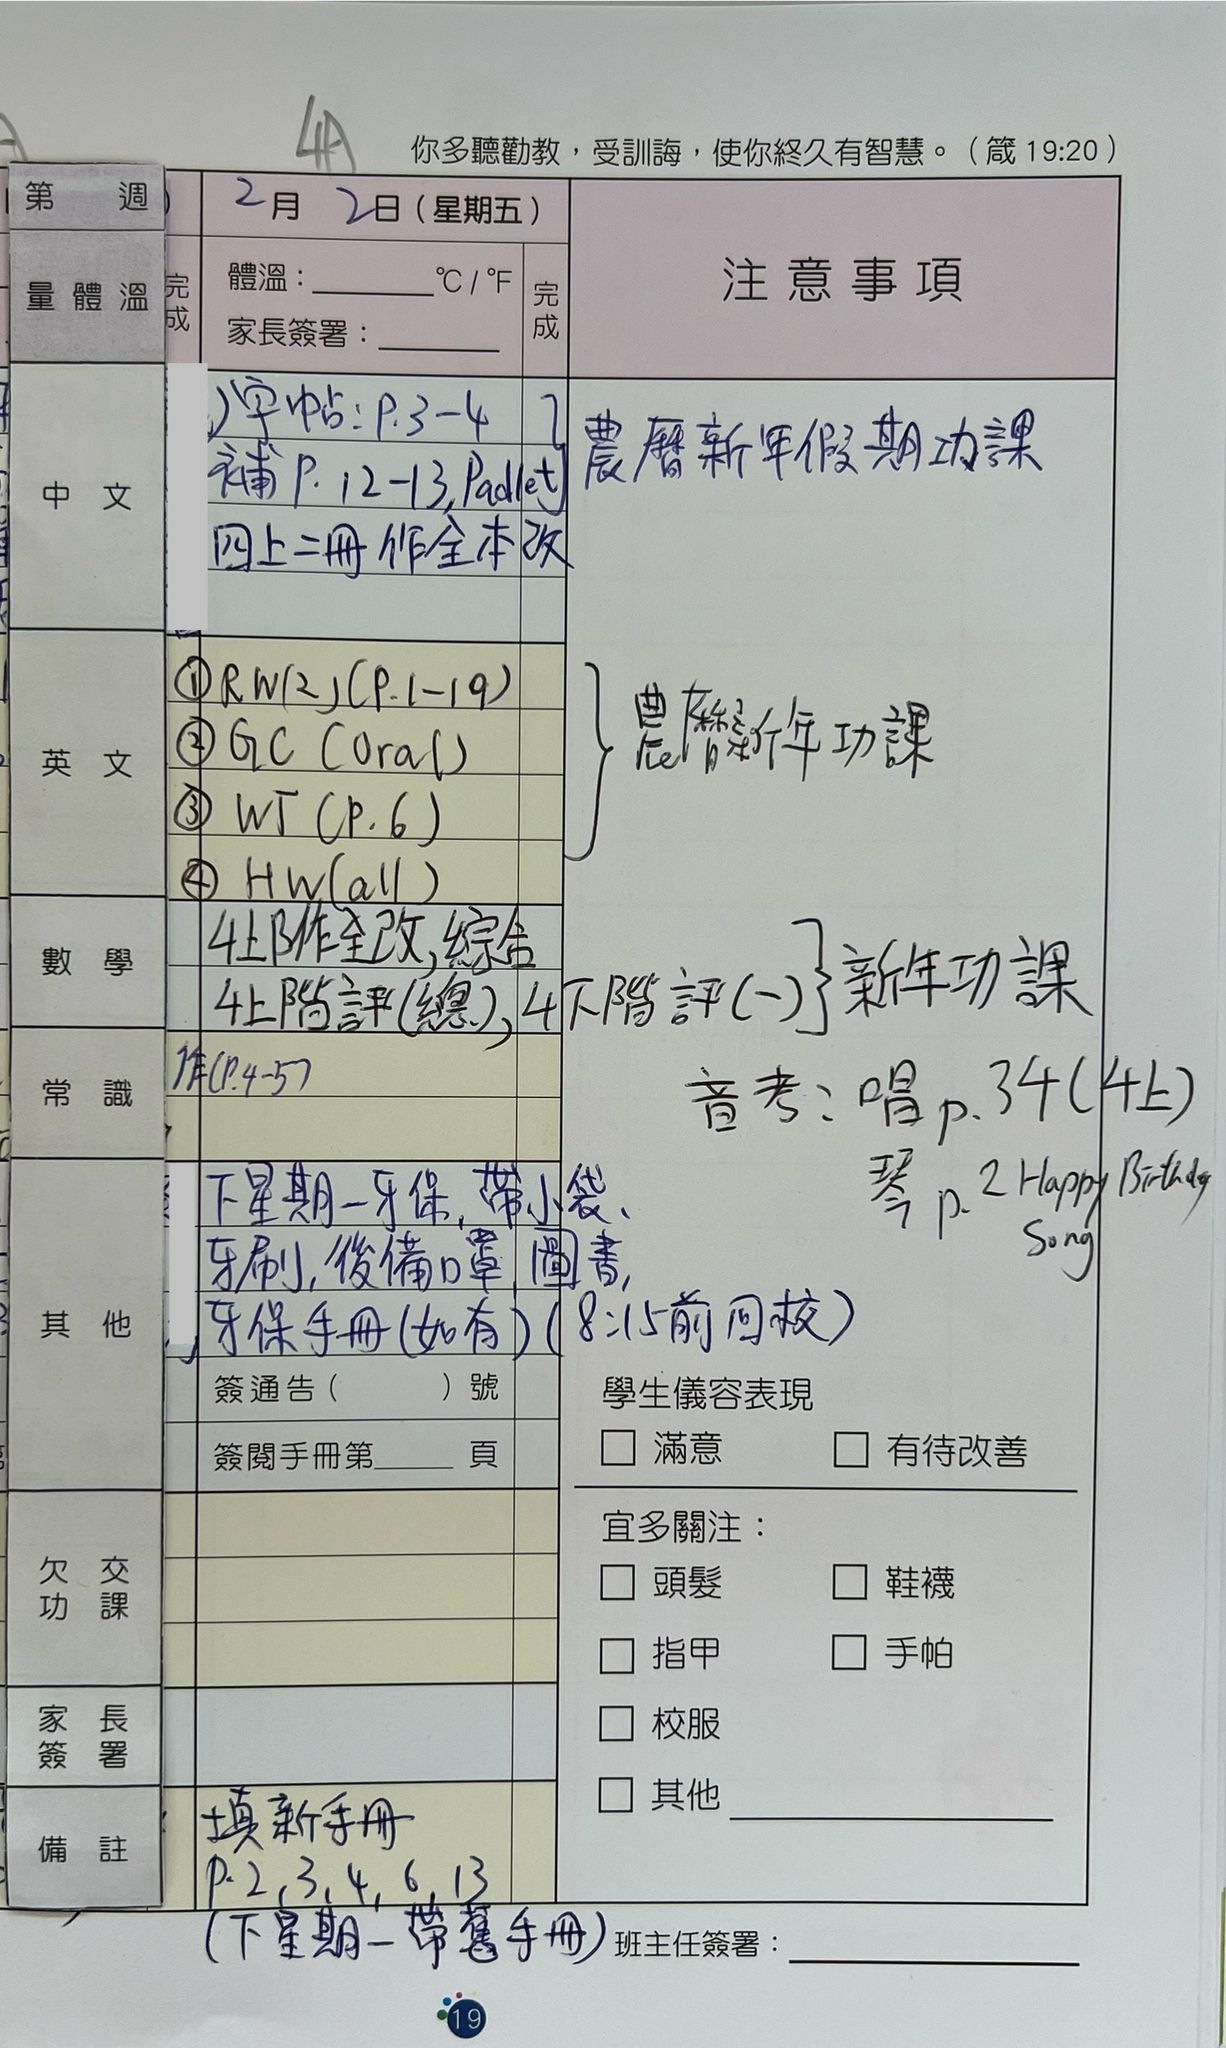 4A
你多聽勸教，受訓誨，使你終久有智慧。（箴 19:20）
第 週
2月 2日（星期五）
注意事項
量體溫
完成
體溫：______℃/℉
家長簽署：______
完成
中文
字帖：P.3-4
補 P.12-13, Padlet
農曆新年假期功課
四上二冊作全本改
英文
① RW(2)(P.1-19)
② GC (Oral)
③ WJ (P.6)
④ HW(all)
農曆新年功課
數學
4上B作全改,綜合
4上階評(總), 4下階評(一)
新年功課
常識
作(P.4-5)
音考：唱 p.34(4上)
琴 p.2 Happy Birthday Song
其他
下星期一牙保,帶小袋、
牙刷,後備口罩,圖書,
牙保手冊(如有)(8:15前回校)
簽通告（ ）號
簽閱手冊第____頁
學生儀容表現
□ 滿意 □ 有待改善
欠交功課
宜多關注：
□ 頭髮 □ 鞋襪
□ 指甲 □ 手帕
□ 校服
□ 其他____________
家長簽署
備註
填新手冊
P.2,3,4,6,13
(下星期一帶舊手冊)
班主任簽署：____________
19